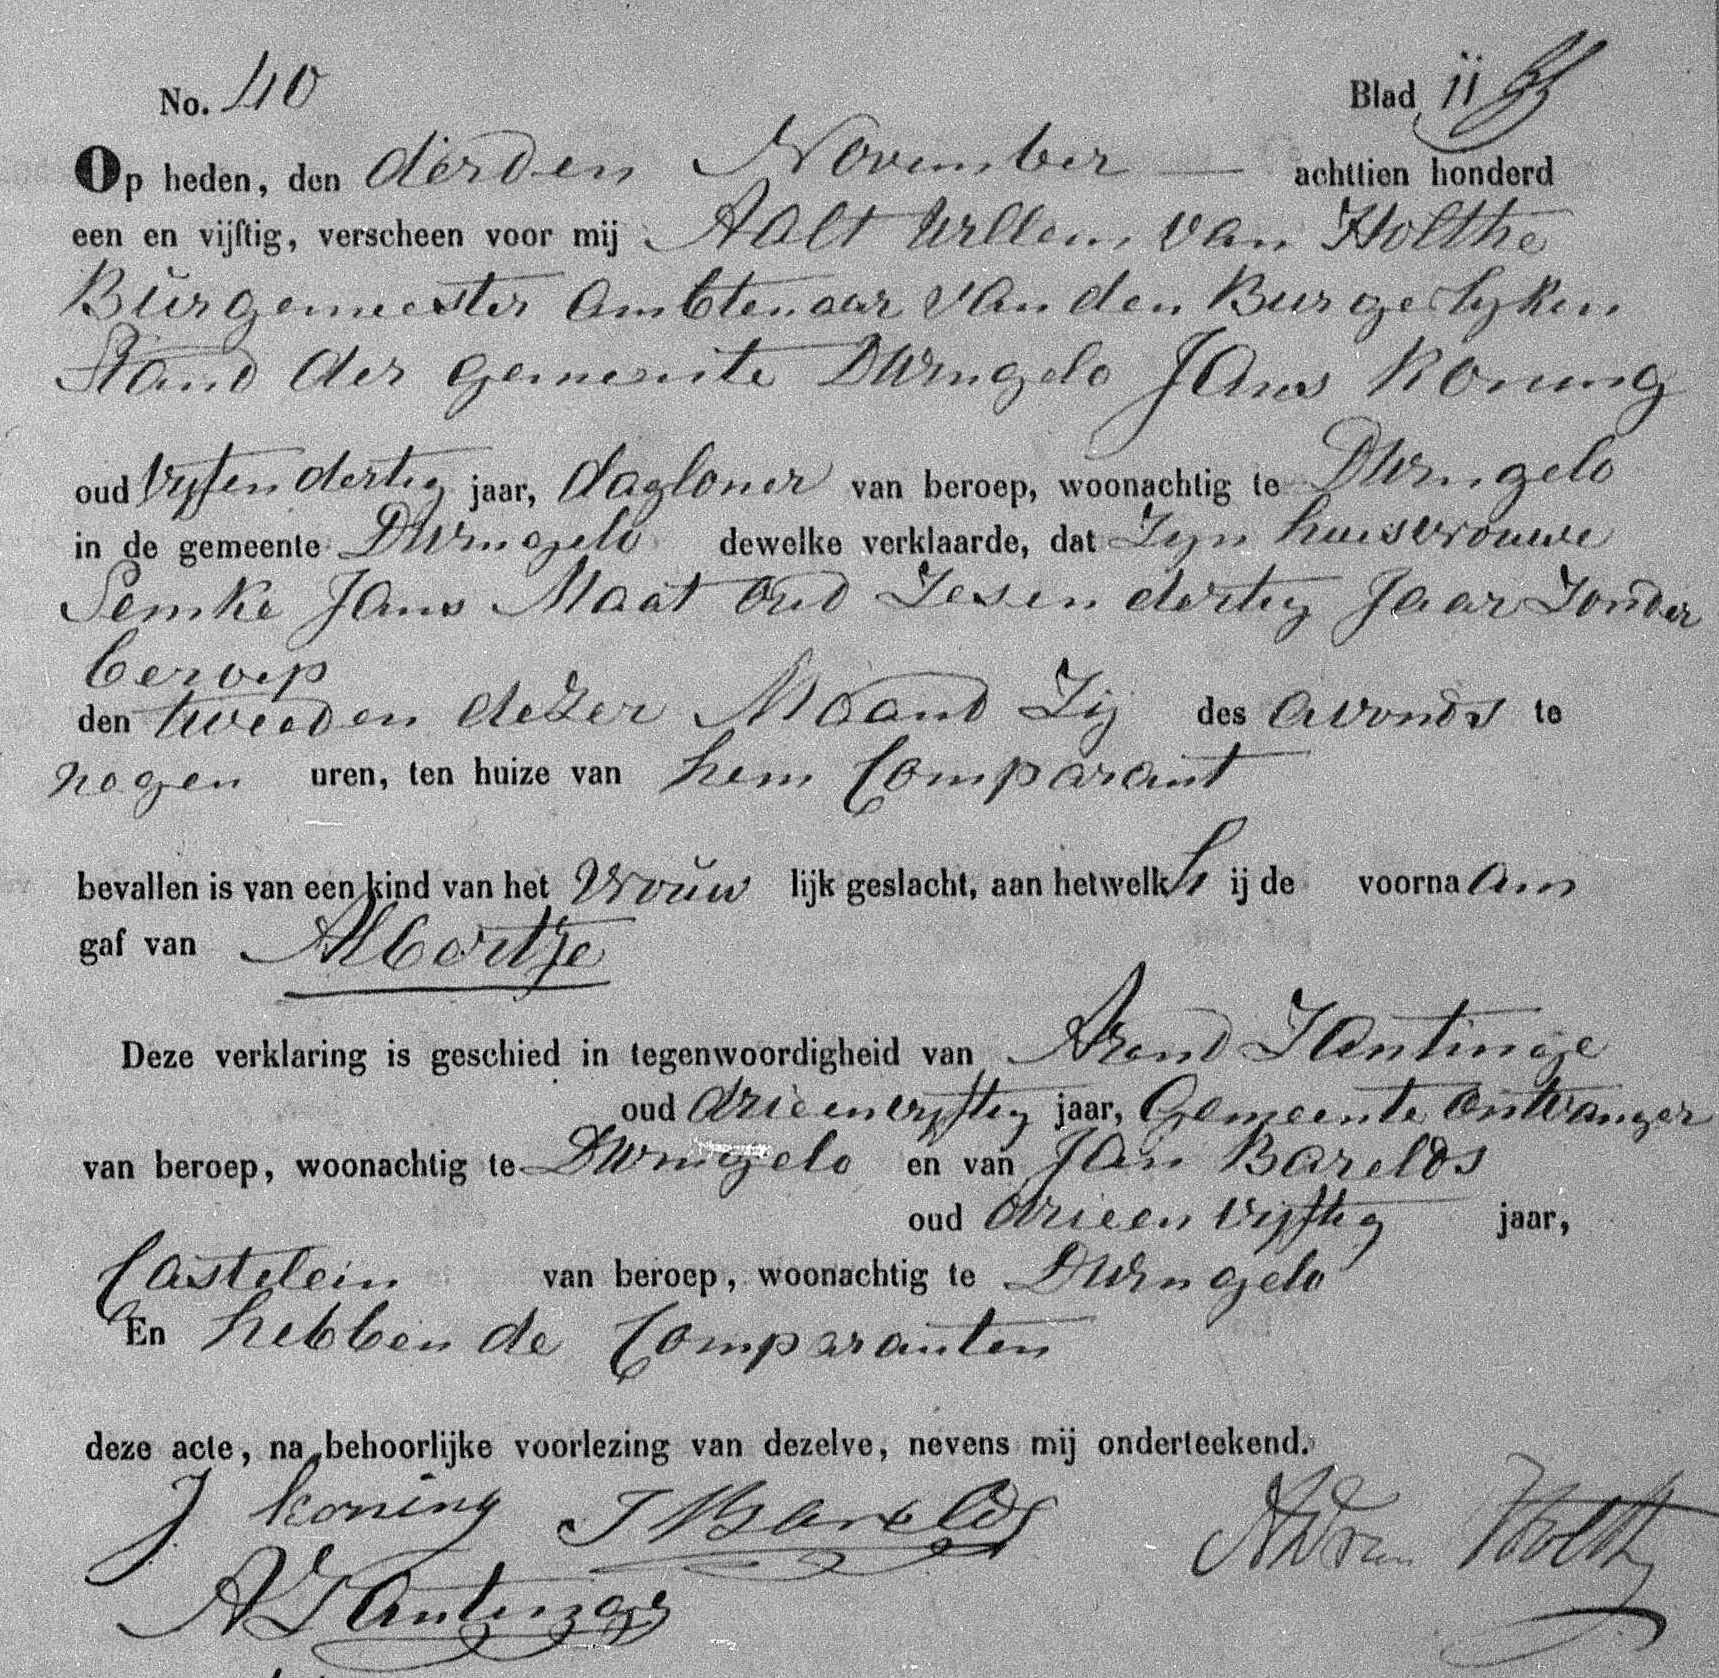 No. 40 Blad 11
Op heden, den derden November — achttien honderd
een en vijftig, verscheen voor mij Aalt Willem van Holthe
Burgemeester ambtenaar van den Burgerlyken
Stand der gemeente Dwingelo Jans Koning
oud vyfen dertig jaar, dagloner van beroep, woonachtig te Dwingelo
in de gemeente Dwingelo dewelke verklaarde, dat Zyn huisvrouwe
Semke Jans Maat oud Zesen dertig Jaar Zonder
beroep
den tweeden dezer Maand Zij des avonds te
negen uren, ten huize van hem Comparant
bevallen is van een kind van het Vrouw lijk geslacht, aan hetwelk h ij de voorna am
gaf van Albertje
Deze verklaring is geschied in tegenwoordigheid van Arend Zantinge
oud drieenvyftig jaar, Gemeente ontvanger
van beroep, woonachtig te Dwingelo en van Jan Barelds
oud drieen vijftig jaar,
Castelein van beroep, woonachtig te Dwingelo
En hebben de Comparanten
deze acte, na behoorlijke voorlezing van dezelve, nevens mij onderteekend.
J koning J Barelds AW van Holthe
A Zantinge